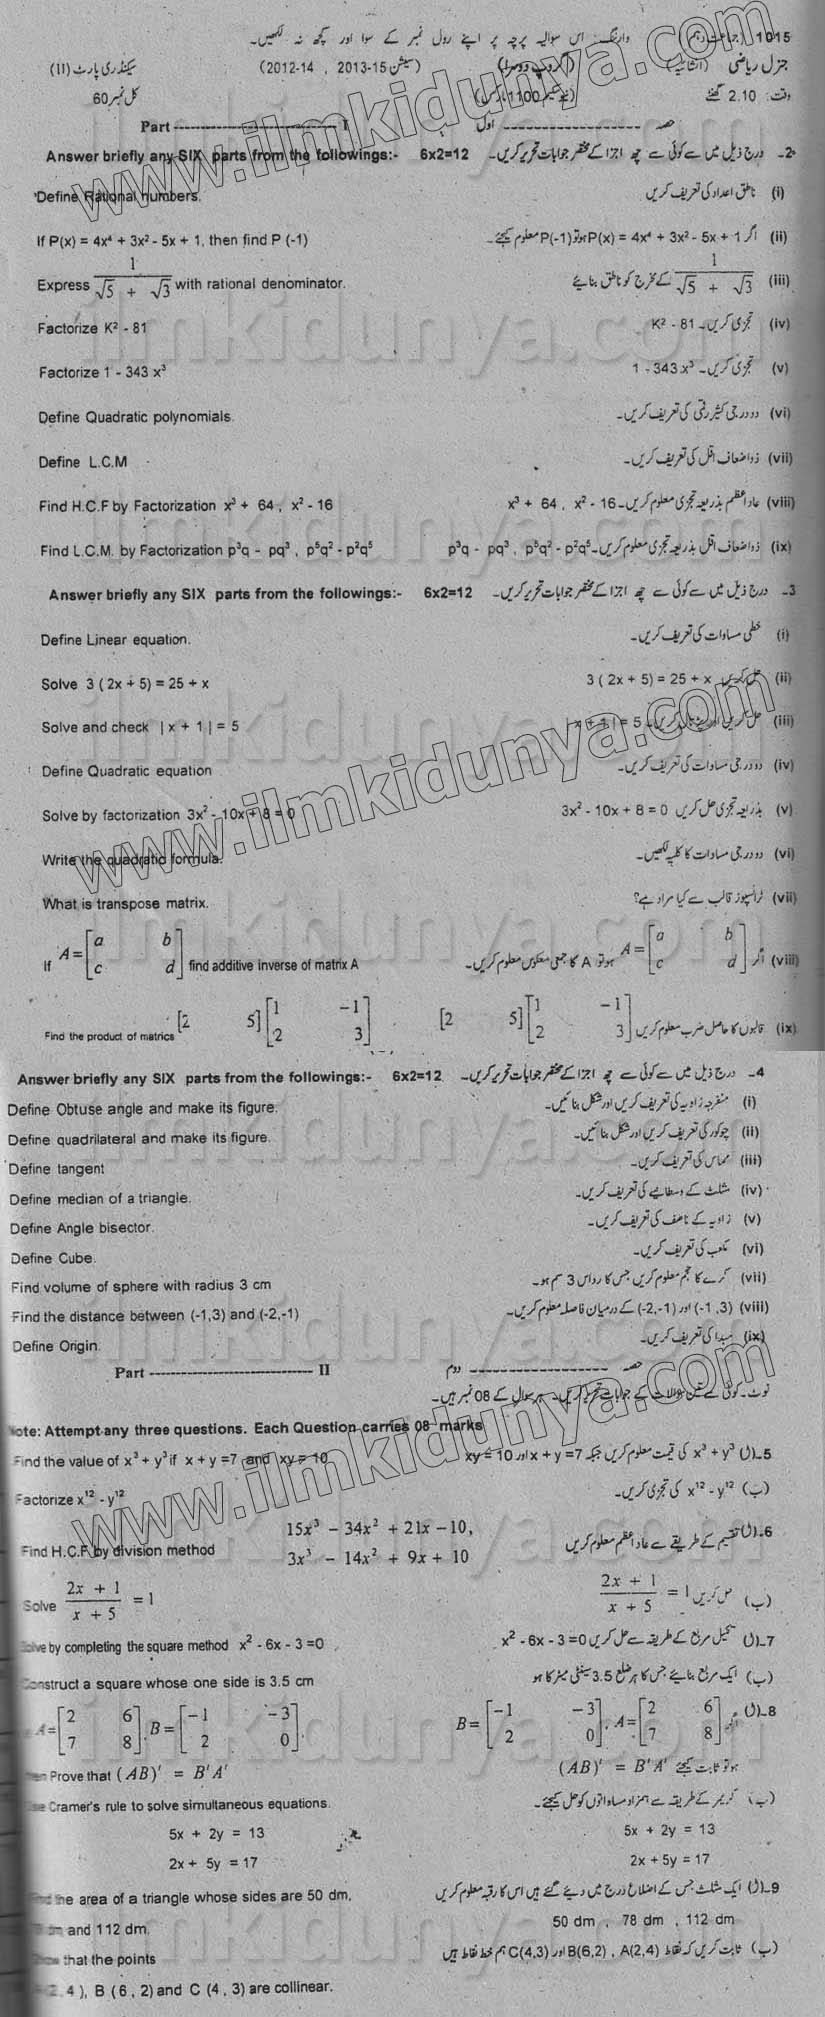 1015 (جماعت دہم) وارننگ: اس سوالیہ پرچہ پر اپنے رول نمبر کے سوا اور کچھ نہ لکھیں۔
جنرل ریاضی (انشائیہ) (گروپ دوسرا) (سیشن 15-2013 , 14-2012) سیکنڈری پارٹ (II)
وقت: 2.10 گھنٹے (نیو سکیم 1100 مارکس) کل نمبر 60
Part ------------ I حصہ ------------ اول
Answer briefly any SIX parts from the followings:- 6x2=12 2- درج ذیل میں سے کوئی سے چھ اجزا کے مختصر جوابات تحریر کریں۔
Define Rational numbers. (i) ناطق اعداد کی تعریف کریں
If P(x) = 4x⁴ + 3x² - 5x + 1, then find P (-1) (ii) اگر P(x) = 4x⁴ + 3x² - 5x + 1 ہو تو P(-1) معلوم کیجئے۔
Express 1/(√5 + √3) with rational denominator. (iii) 1/(√5 + √3) کے مخرج کو ناطق بنائیے
Factorize K² - 81 (iv) تجزی کریں۔ K² - 81
Factorize 1 - 343 x³ (v) تجزی کریں۔ 1 - 343 x³
Define Quadratic polynomials. (vi) دو درجی کثیر رقمی کی تعریف کریں۔
Define L.C.M (vii) ذواضعاف اقل کی تعریف کریں۔
Find H.C.F by Factorization x³ + 64 , x² - 16 (viii) عاد اعظم بذریعہ تجزی معلوم کریں۔ x³ + 64 , x² - 16
Find L.C.M. by Factorization p³q - pq³ , p⁵q² - p²q⁵ (ix) ذواضعاف اقل بذریعہ تجزی معلوم کریں۔ p³q - pq³ , p⁵q² - p²q⁵
Answer briefly any SIX parts from the followings:- 6x2=12 3- درج ذیل میں سے کوئی سے چھ اجزا کے مختصر جوابات تحریر کریں۔
Define Linear equation. (i) خطی مساوات کی تعریف کریں۔
Solve 3 ( 2x + 5) = 25 + x (ii) حل کریں 3 ( 2x + 5) = 25 + x
Solve and check | x + 1 | = 5 (iii) حل کریں اور پڑتال کریں۔ | x + 1 | = 5
Define Quadratic equation (iv) دو درجی مساوات کی تعریف کریں۔
Solve by factorization 3x² - 10x + 8 = 0 (v) بذریعہ تجزی حل کریں 3x² - 10x + 8 = 0
Write the quadratic formula. (vi) دو درجی مساوات کا کلیہ لکھیں۔
What is transpose matrix. (vii) ٹرانسپوز قالب سے کیا مراد ہے؟
If A = [a b; c d] find additive inverse of matrix A (viii) اگر A = [a b; c d] ہو تو A کا جمعی معکوس معلوم کریں۔
Find the product of matrics [2 5] [1 -1; 2 3] (ix) قالبوں کا حاصل ضرب معلوم کریں [2 5] [1 -1; 2 3]
Answer briefly any SIX parts from the followings:- 6x2=12 4- درج ذیل میں سے کوئی سے چھ اجزا کے مختصر جوابات تحریر کریں۔
Define Obtuse angle and make its figure. (i) منفرجہ زاویہ کی تعریف کریں اور شکل بنائیں۔
Define quadrilateral and make its figure. (ii) چوکور کی تعریف کریں اور شکل بنائیں۔
Define tangent (iii) مماس کی تعریف کریں۔
Define median of a triangle. (iv) مثلث کے وسطانیے کی تعریف کریں۔
Define Angle bisector. (v) زاویہ کے ناصف کی تعریف کریں۔
Define Cube. (vi) مکعب کی تعریف کریں۔
Find volume of sphere with radius 3 cm (vii) کرے کا حجم معلوم کریں جس کا رداس 3 سم ہو۔
Find the distance between (-1,3) and (-2,-1) (viii) (-1 ,3) اور (-2,-1) کے درمیان فاصلہ معلوم کریں۔
Define Origin. (ix) مبدا کی تعریف کریں۔
Part ------------ II حصہ ------------ دوم
نوٹ۔ کوئی سے تین سوالات کے جوابات تحریر کریں۔ ہر سوال کے 08 نمبر ہیں۔
Note: Attempt any three questions. Each Question carries 08 marks
Find the value of x³ + y³ if x + y =7 and xy = 10 5-(ل) x³ + y³ کی قیمت معلوم کریں جبکہ x + y =7 اور xy = 10
Factorize x¹² - y¹² (ب) x¹² - y¹² کی تجزی کریں۔
Find H.C.F by division method 15x³ - 34x² + 21x - 10, 6-(ل) تقسیم کے طریقے سے عاد اعظم معلوم کریں
3x³ - 14x² + 9x + 10
Solve (2x + 1)/(x + 5) = 1 (ب) حل کریں (2x + 1)/(x + 5) = 1
by completing the square method x² - 6x - 3 =0 7-(ل) تکمیل مربع کے طریقہ سے حل کریں x² - 6x - 3 =0
Construct a square whose one side is 3.5 cm (ب) ایک مربع بنائیے جس کا ہر ضلع 3.5 سینٹی میٹر کا ہو
A= [2 6; 7 8], B = [-1 -3; 2 0]. 8-(ل) اگر A= [2 6; 7 8], B = [-1 -3; 2 0]
Prove that (AB)' = B'A' ہو تو ثابت کیجئے (AB)' = B'A'
Cramer's rule to solve simultaneous equations. (ب) کریمر کے طریقہ سے ہمزاد مساواتوں کو حل کیجئے۔
5x + 2y = 13 5x + 2y = 13
2x + 5y = 17 2x + 5y = 17
the area of a triangle whose sides are 50 dm, 9-(ل) ایک مثلث جس کے اضلاع درج میں دیئے گئے ہیں اس کا رقبہ معلوم کریں
dm and 112 dm. 50 dm , 78 dm , 112 dm
that the points (ب) ثابت کریں کہ نقاط A(2,4) , B(6,2) اور C(4,3) ہم خط نقاط ہیں
4 ), B ( 6 , 2) and C (4 , 3) are collinear.
www.ilmkidunya.com
www.ilmkidunya.com
www.ilmkidunya.com
ilmkidunya.com